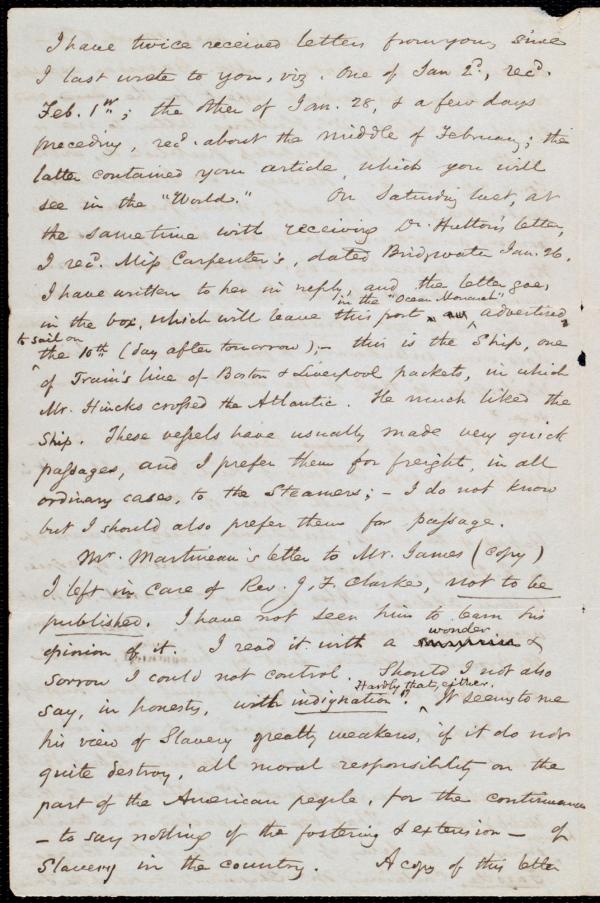 I have twice received letters from you, since
I last wrote to you, viz. One of Jan 2d., recd.
Feb. 1st; the other of Jan. 28, & a few days
preceding, recd. about the middle of February; the
latter contained your article, which you will
see in the "World." On Saturday last, at
the same time with receiving Dr. Hutton's letter,
I recd. Miss Carpenter's, dated Bridgwater Jan. 26.
I have written to her in reply, and the letter goes
in the "Ocean Monarch"
in the box, which will leave this port, advertised,
to sail on
the 10th (day after tomorrow);– this is the Ship, one
of Train's line of Boston & Liverpool packets, in which
Mr. Hincks crossed the Atlantic. He much liked the
Ship. These vessels have usually made very quick
passages, and I prefer them for freight, in all
ordinary cases, to the Steamers; – I do not know
but I should also prefer them for passage.
Mr. Martineau's letter to Mr. James (copy)
I left in care of Rev. J. F. Clarke, not to be
published. I have not seen him to learn his
opinion of it. I read it with a
wonder
&
sorrow I could not control. Should I not also
Hardly that, either.
say, in honesty, with indignation? It seems to me
his view of Slavery greatly weakens, if it do not
quite destroy, all moral responsibility on the
part of the American people, for the continuance
– to say nothing of the fostering & extension – of
Slavery in the country. A copy of this letter